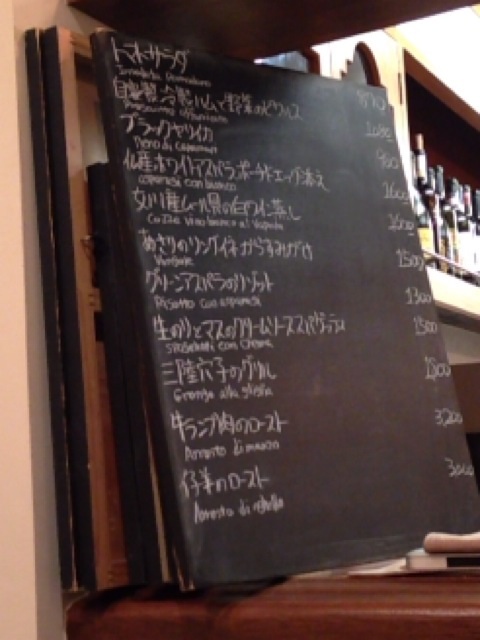 トマトサラダ
Pomodoro
自家製 冷製ハムと野菜のピクルス 1000
Prosciutto affumicato
ブラックヤリイカ
nero di
仏産ホワイトアスパラ ポーチドエッグ添え 1600
asparagi con bianco
女川産ムール貝の白ワイン蒸し 1600
Cozze vino bianco al vapore
あさりのリングイネ からすみがけ 1500
Vongole
グリーンアスパラのリゾット 1300
Risotto con asparagi
生のりとマスのクリームソーススパゲッティ 1500
con Crema
三陸穴子のグリル
Grongo alla griglia
牛ランプ肉のロースト 3,200
Arrosto di manzo
仔羊のロースト 3,000
Arrosto di agnello